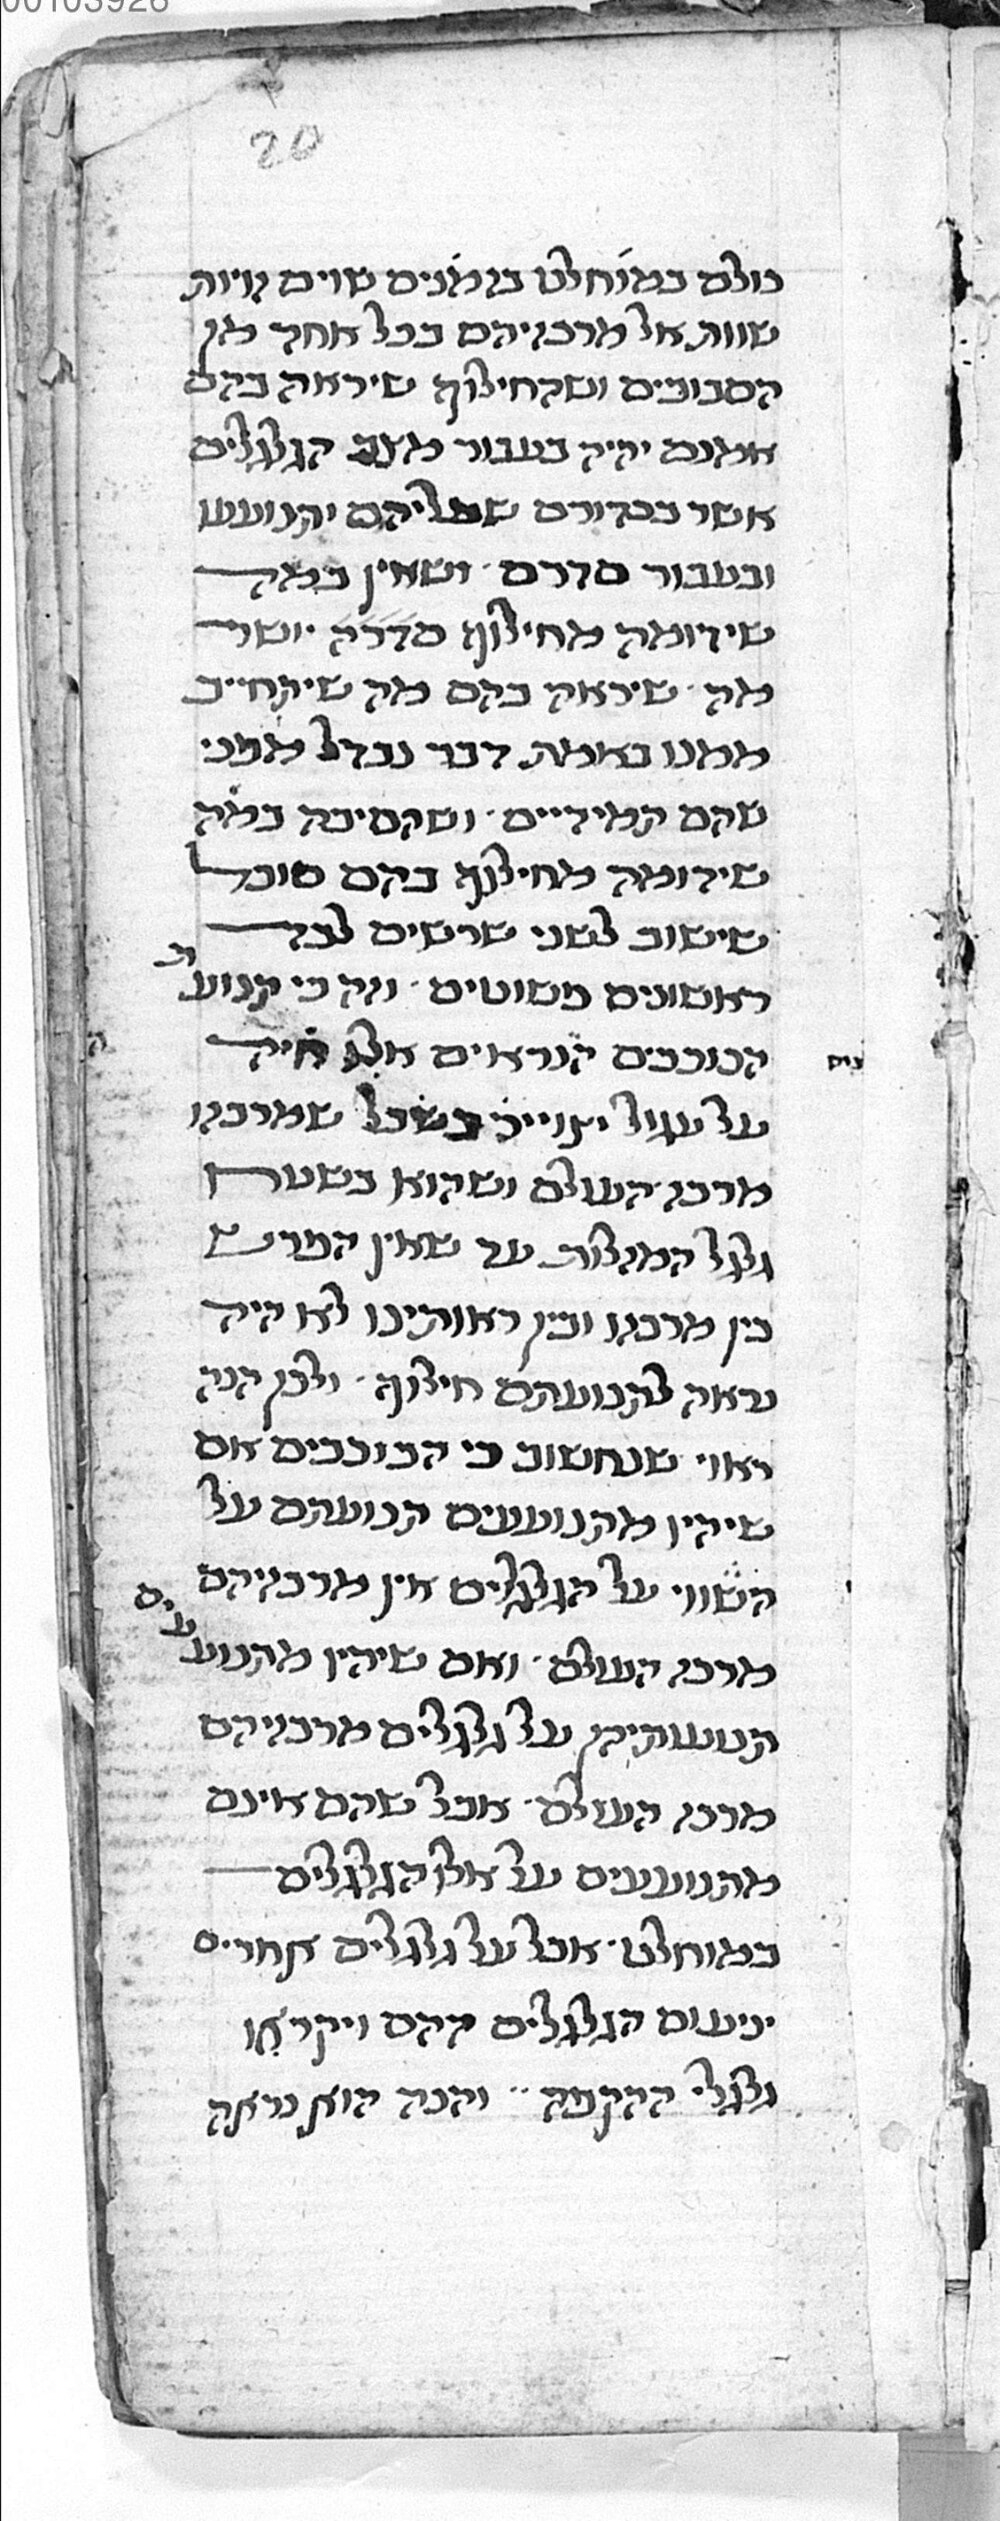 20
כולם במוחלט בזמנים שוים זויות
שוות אל מרכזיהם בכל אחד מן
הסבובים ושהחילוף שיראה בהם
אמנם יהיה בעבור מצב הגלגלים
אשר בכדורם שעליהם יתנועעו
ובעבור סדרם ושאין במה
שידומה מחילוף סדרה יושר
מה שיראה בהם מה שיתחייב
ממנו באמת דבר נבדל מפני
שהם תמידיים ושהסיבה במה
שידומה מחילוף בהם סובל
שישוב לשני שרשים לבד
ראשונים פשוטים וזה כי תנועת
הכוכבים הנראים אלו היה
על עגול יצוייר בשכל שמרכזו
מרכז העולם ושהוא בשטח
גלגל המזלות עד שאין הפרש
בין מרכזו ובין ראותינו לא היה
נראה לתנועתם חילוף ולכן הנה
ראוי שנחשוב כי הכוכבים אם
שיהיו מתנועעים תנועתם על
השווי על הגלגלים אין מרכזיהם
מרכז העולם ואם שיהיו מתנועעים
תנועתיהן על גלגלים מרכזיהם
מרכז העולם אבל שהם אינם
מתנועעים על אלו הגלגלים
במוחלט אבל על גלגלים אחרים
יניעום הגלגלים ההם ויקראו
גלגלי ההקפה והנה הוא נראה